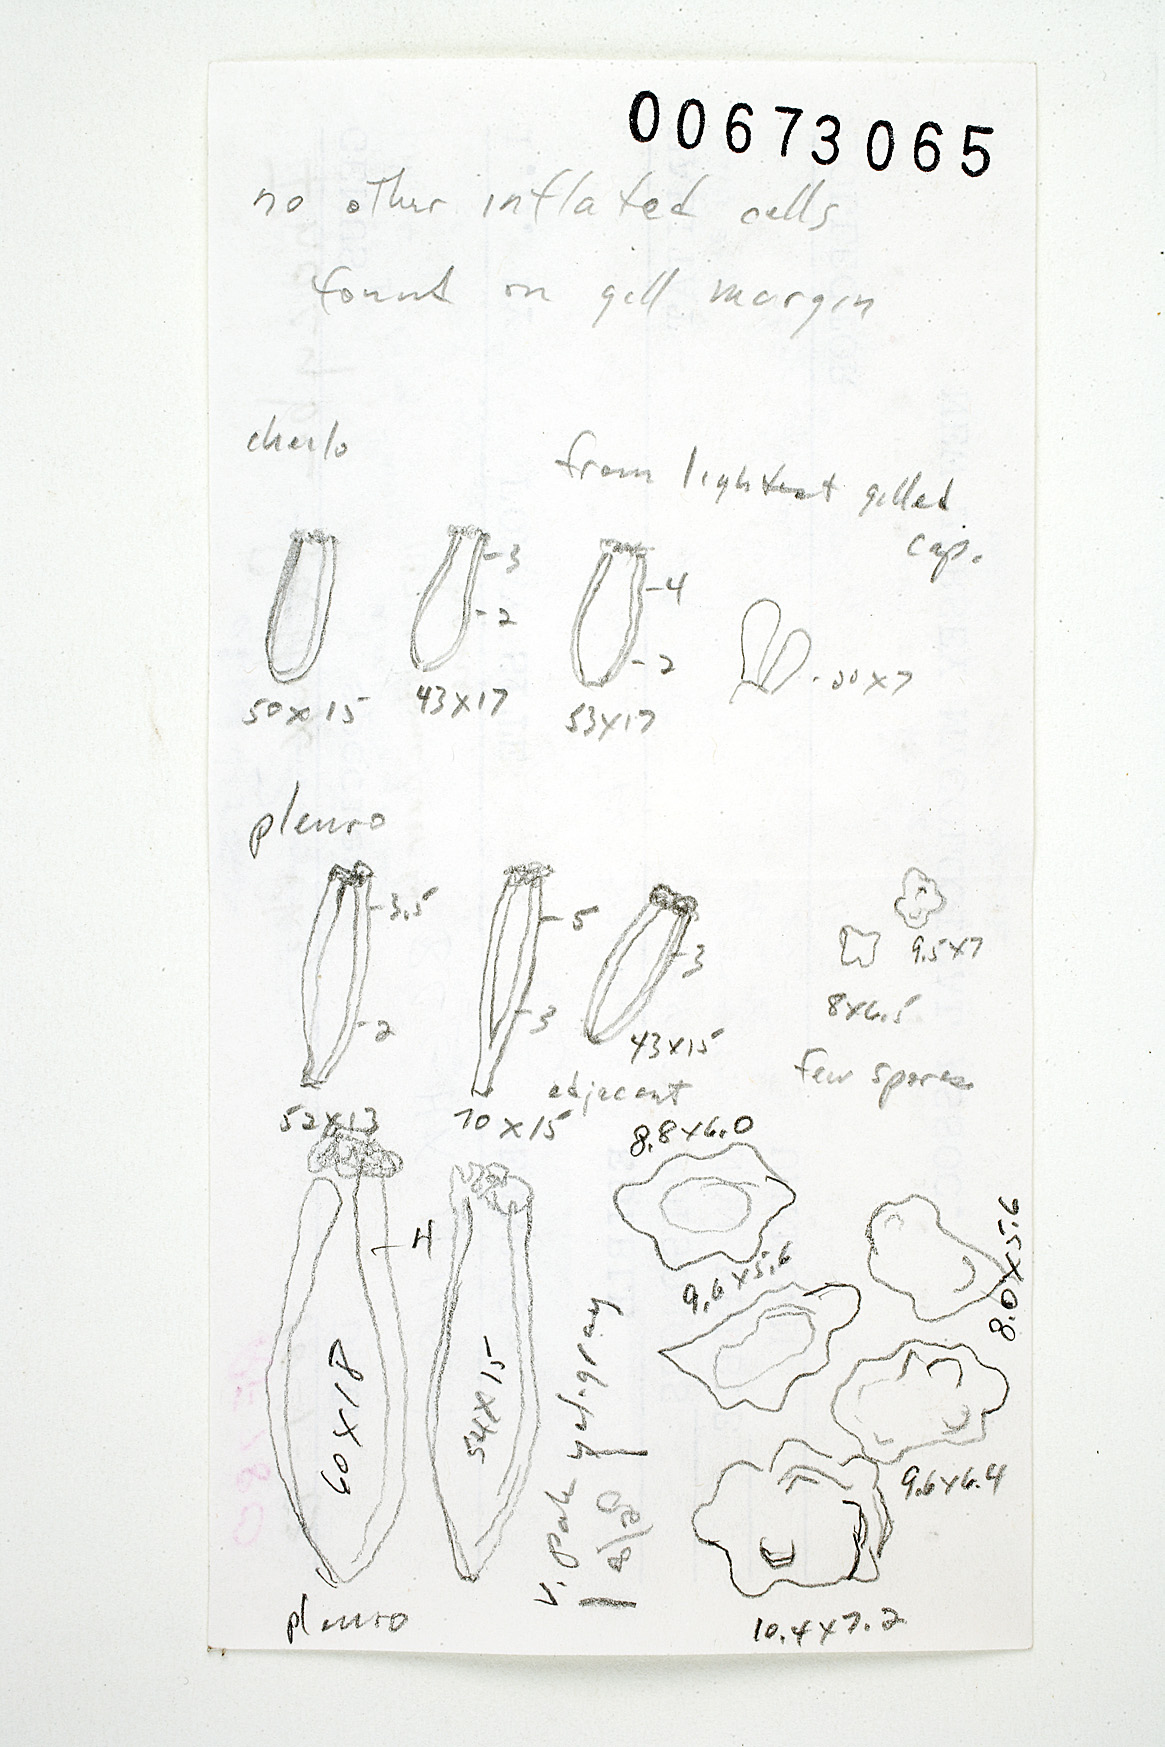 00673065
no other inflated cells
found on gill margin
cheilo
from lightest gilled
cap.
-3
-2
-4
-2
50x15
43x17
53x17
x7
pleuro
-3.5
-2
-5
-3
-3
9.5x7
8x6.5
few spores
43x15
adjacent
52x13
70x15
8.8x6.0
9.6x5.6
8.0x5.6
4
60x18
54x15
v. pale yel-gray
9.6x6.4
10.4x7.2
pleuro